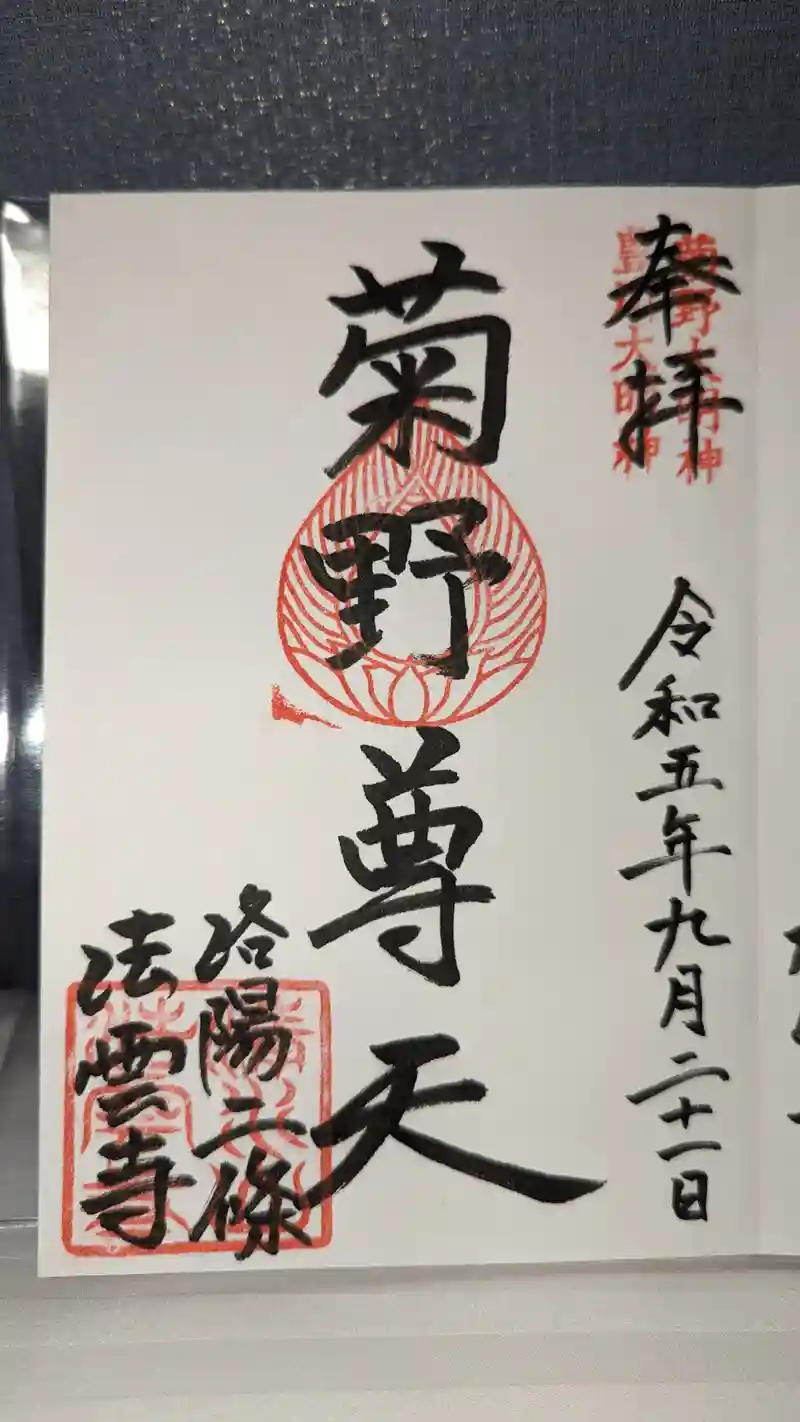 奉拝
菊野大明神
豊川大明神
令和五年九月二十一日
菊野尊天
洛陽二條
法雲寺